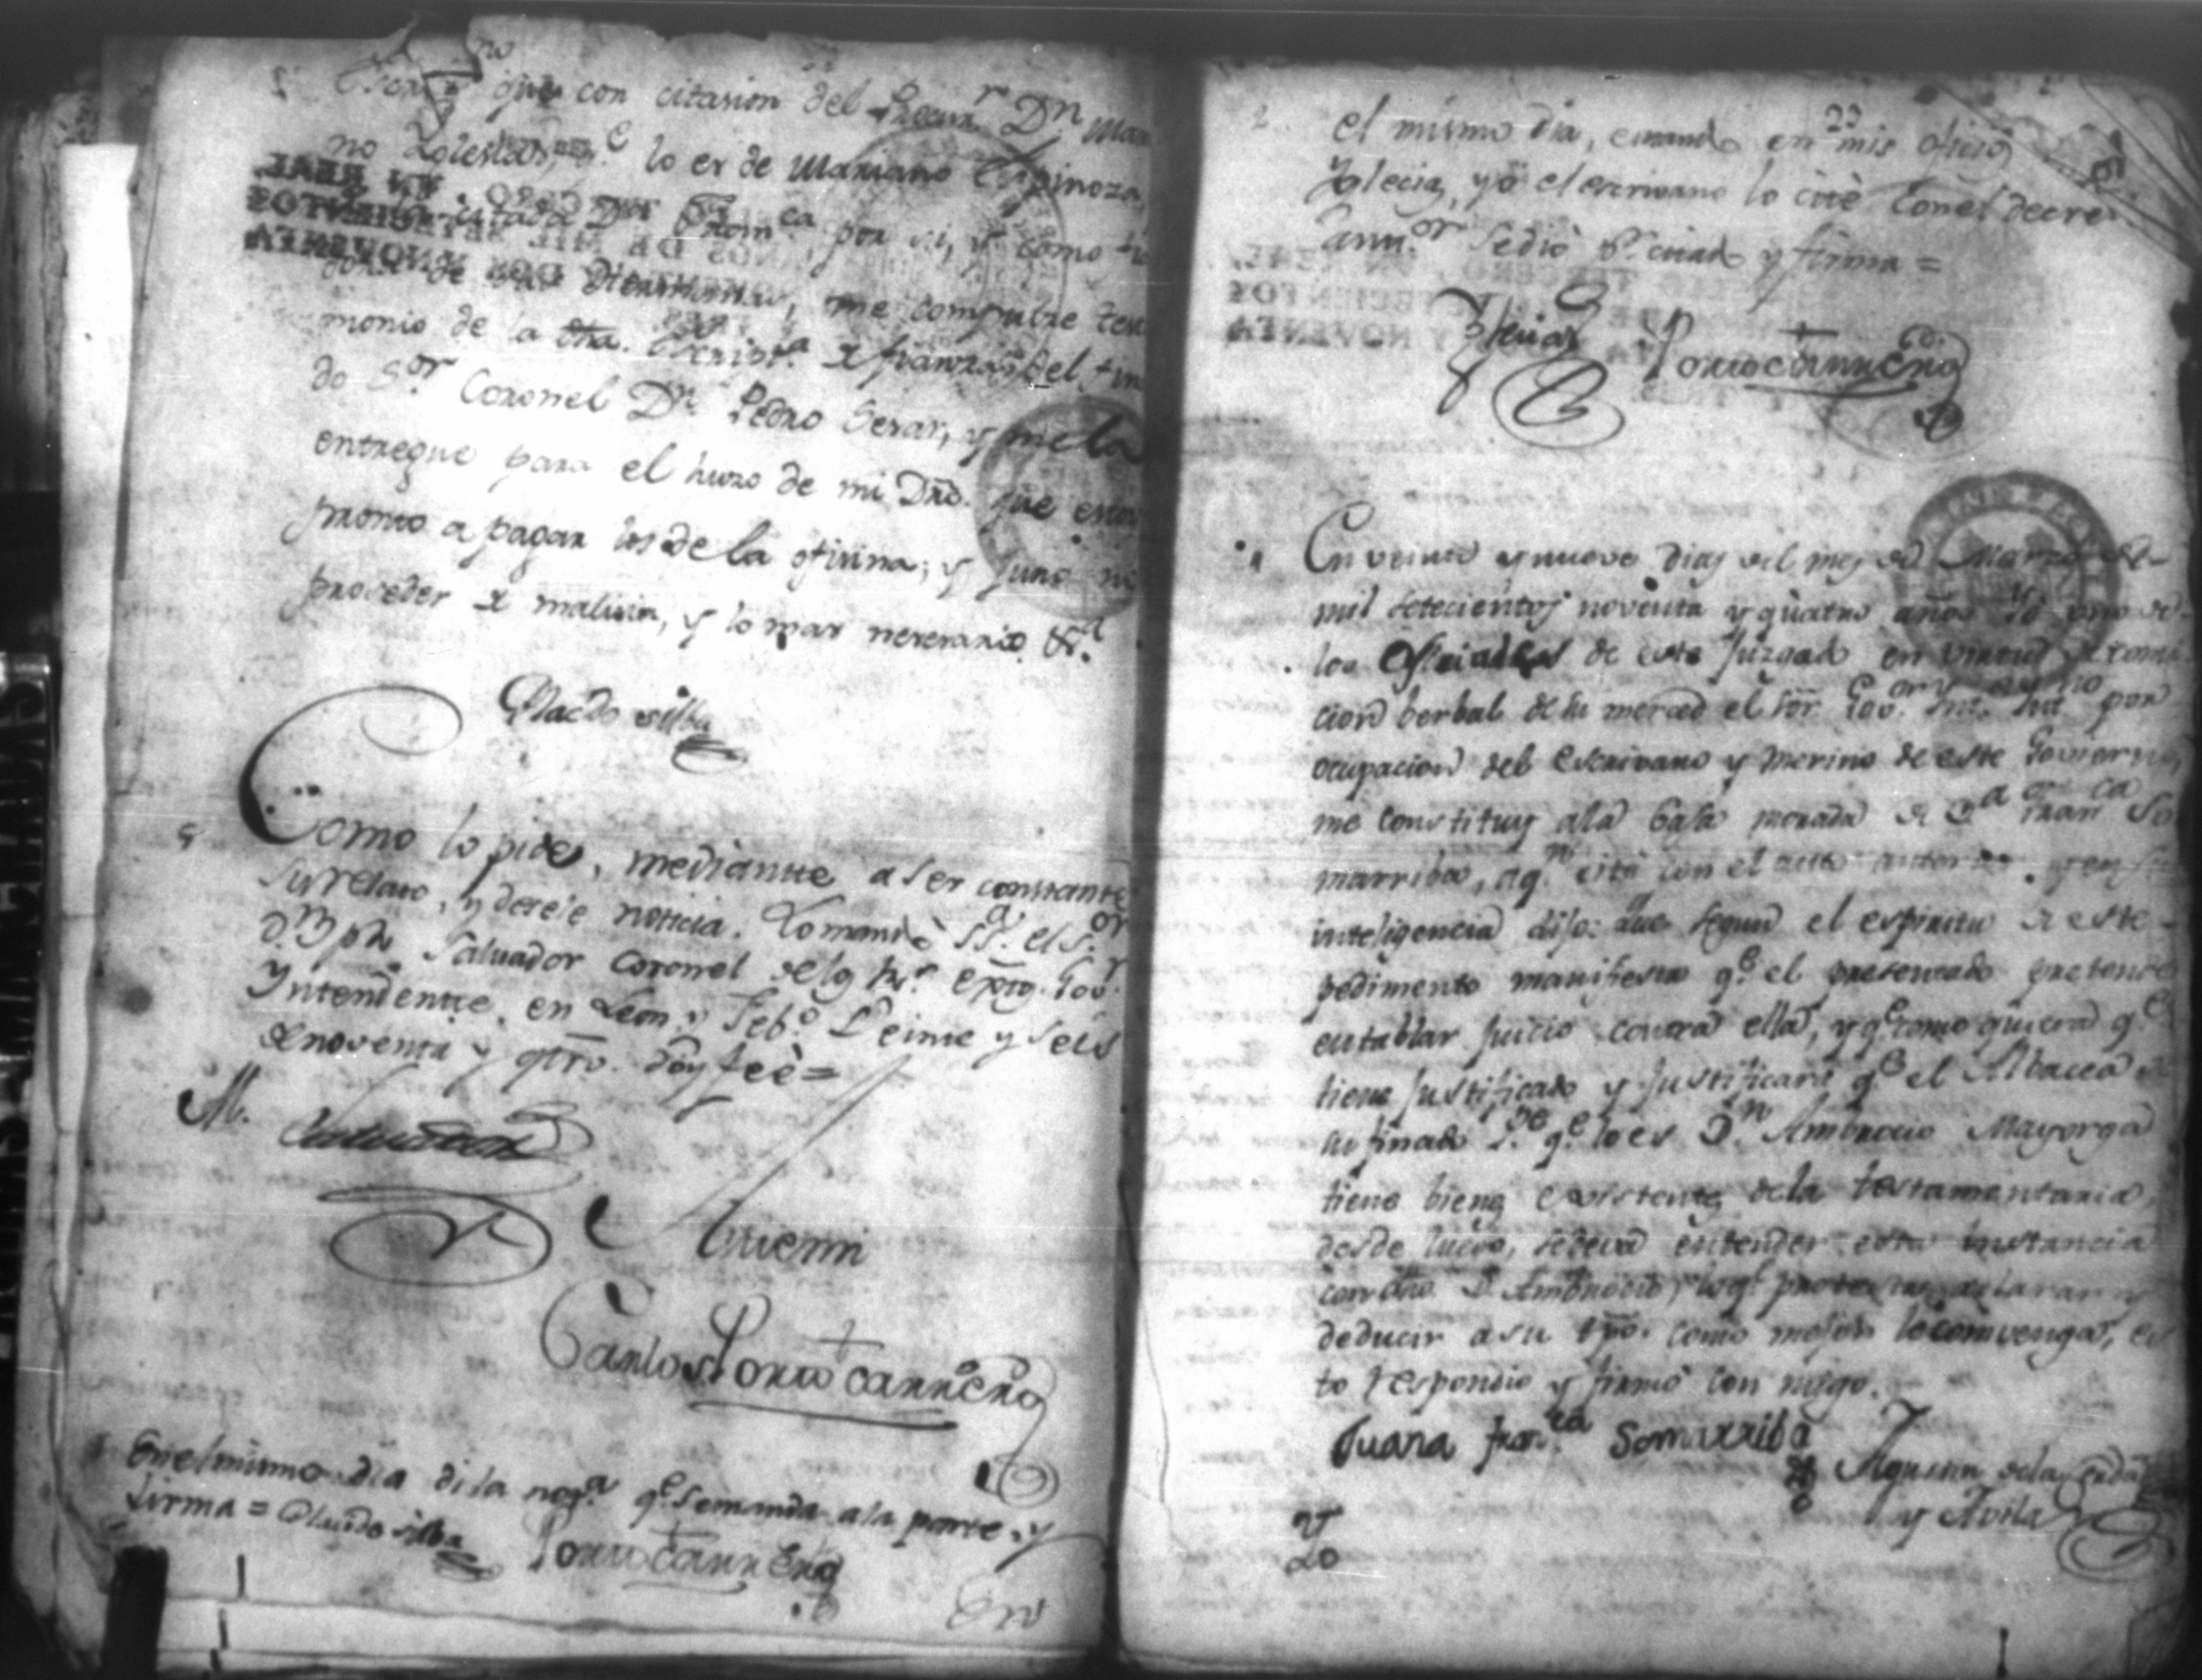 que con citasion del Procur.r Dn Maria
no Yglesias, q.e lo es de Mariano Espinoza,
citada D.a Fran.ca por si, y como tu
tora de sus Menores, me compulse testi
monio de la dha. Escrip.a de fianza del fina
do S.or Coronel Dn. Pedro Serar, y me la
entregue para el huzo de mi Dro. que estoy
pronto a pagar los de la ofisina; y juro no
proceder de malisia, y lo mas neresario &.a
Plasido silba
Como lo pide, mediante a ser constante
su relato, y desele noticia. Lo mandó SSa. el S.or
D.n Jph Salvador Coronel de los Rs. expto. Gov.r
Yntendente, en Leon y Feb.o Veinte y seis
de noventa y qtro. doy feè =
M. Salvador
Antemi
Carlos Portocarrero
En el mismo dia di la nog.a q.e se manda a la parte, y
firma = Plasido silba Portocarrero
En
el mismo dia, estando en mis oficio
Yglecia, yo el escrivano lo citè con el decre
ant.or se diò p.r citado y firma =
Yglecias Portocarrero
En veinte y nueve dias del mes de Marzo de
mil setecientos noventa y quatro años Yo uno de
los Oficiales de este Juzgado en virtud de comi
cion berbal de su merced el Sor. Gov.or Int. por
ocupacion del Escrivano y merino de este Govierno,
me constituy a la Casa morada de D.a Fran.ca So
marriba, a q.n cite con el auto y en su
inteligencia dijo: que segun el espiritu de este
pedimento manifiesta q.e el presentado pretende
entablar juicio contra ella, y q.e como quiera q.e
tiene justificado y justificará q.e el Albacea de
su finado P.e q.e lo es D.n Ambrocio Mayorga
tiene bienes existentes de la testamentaria,
desde luego, se devera entender esta instancia
con dho. D. Ambrocio, lo q.e protesta aclarar y
deducir a su tpo. como mejor le comvenga, es
to respondio y firmó con migo.
Juana Fran.ca Somarriba
Agustin de la Cerda
y Avila